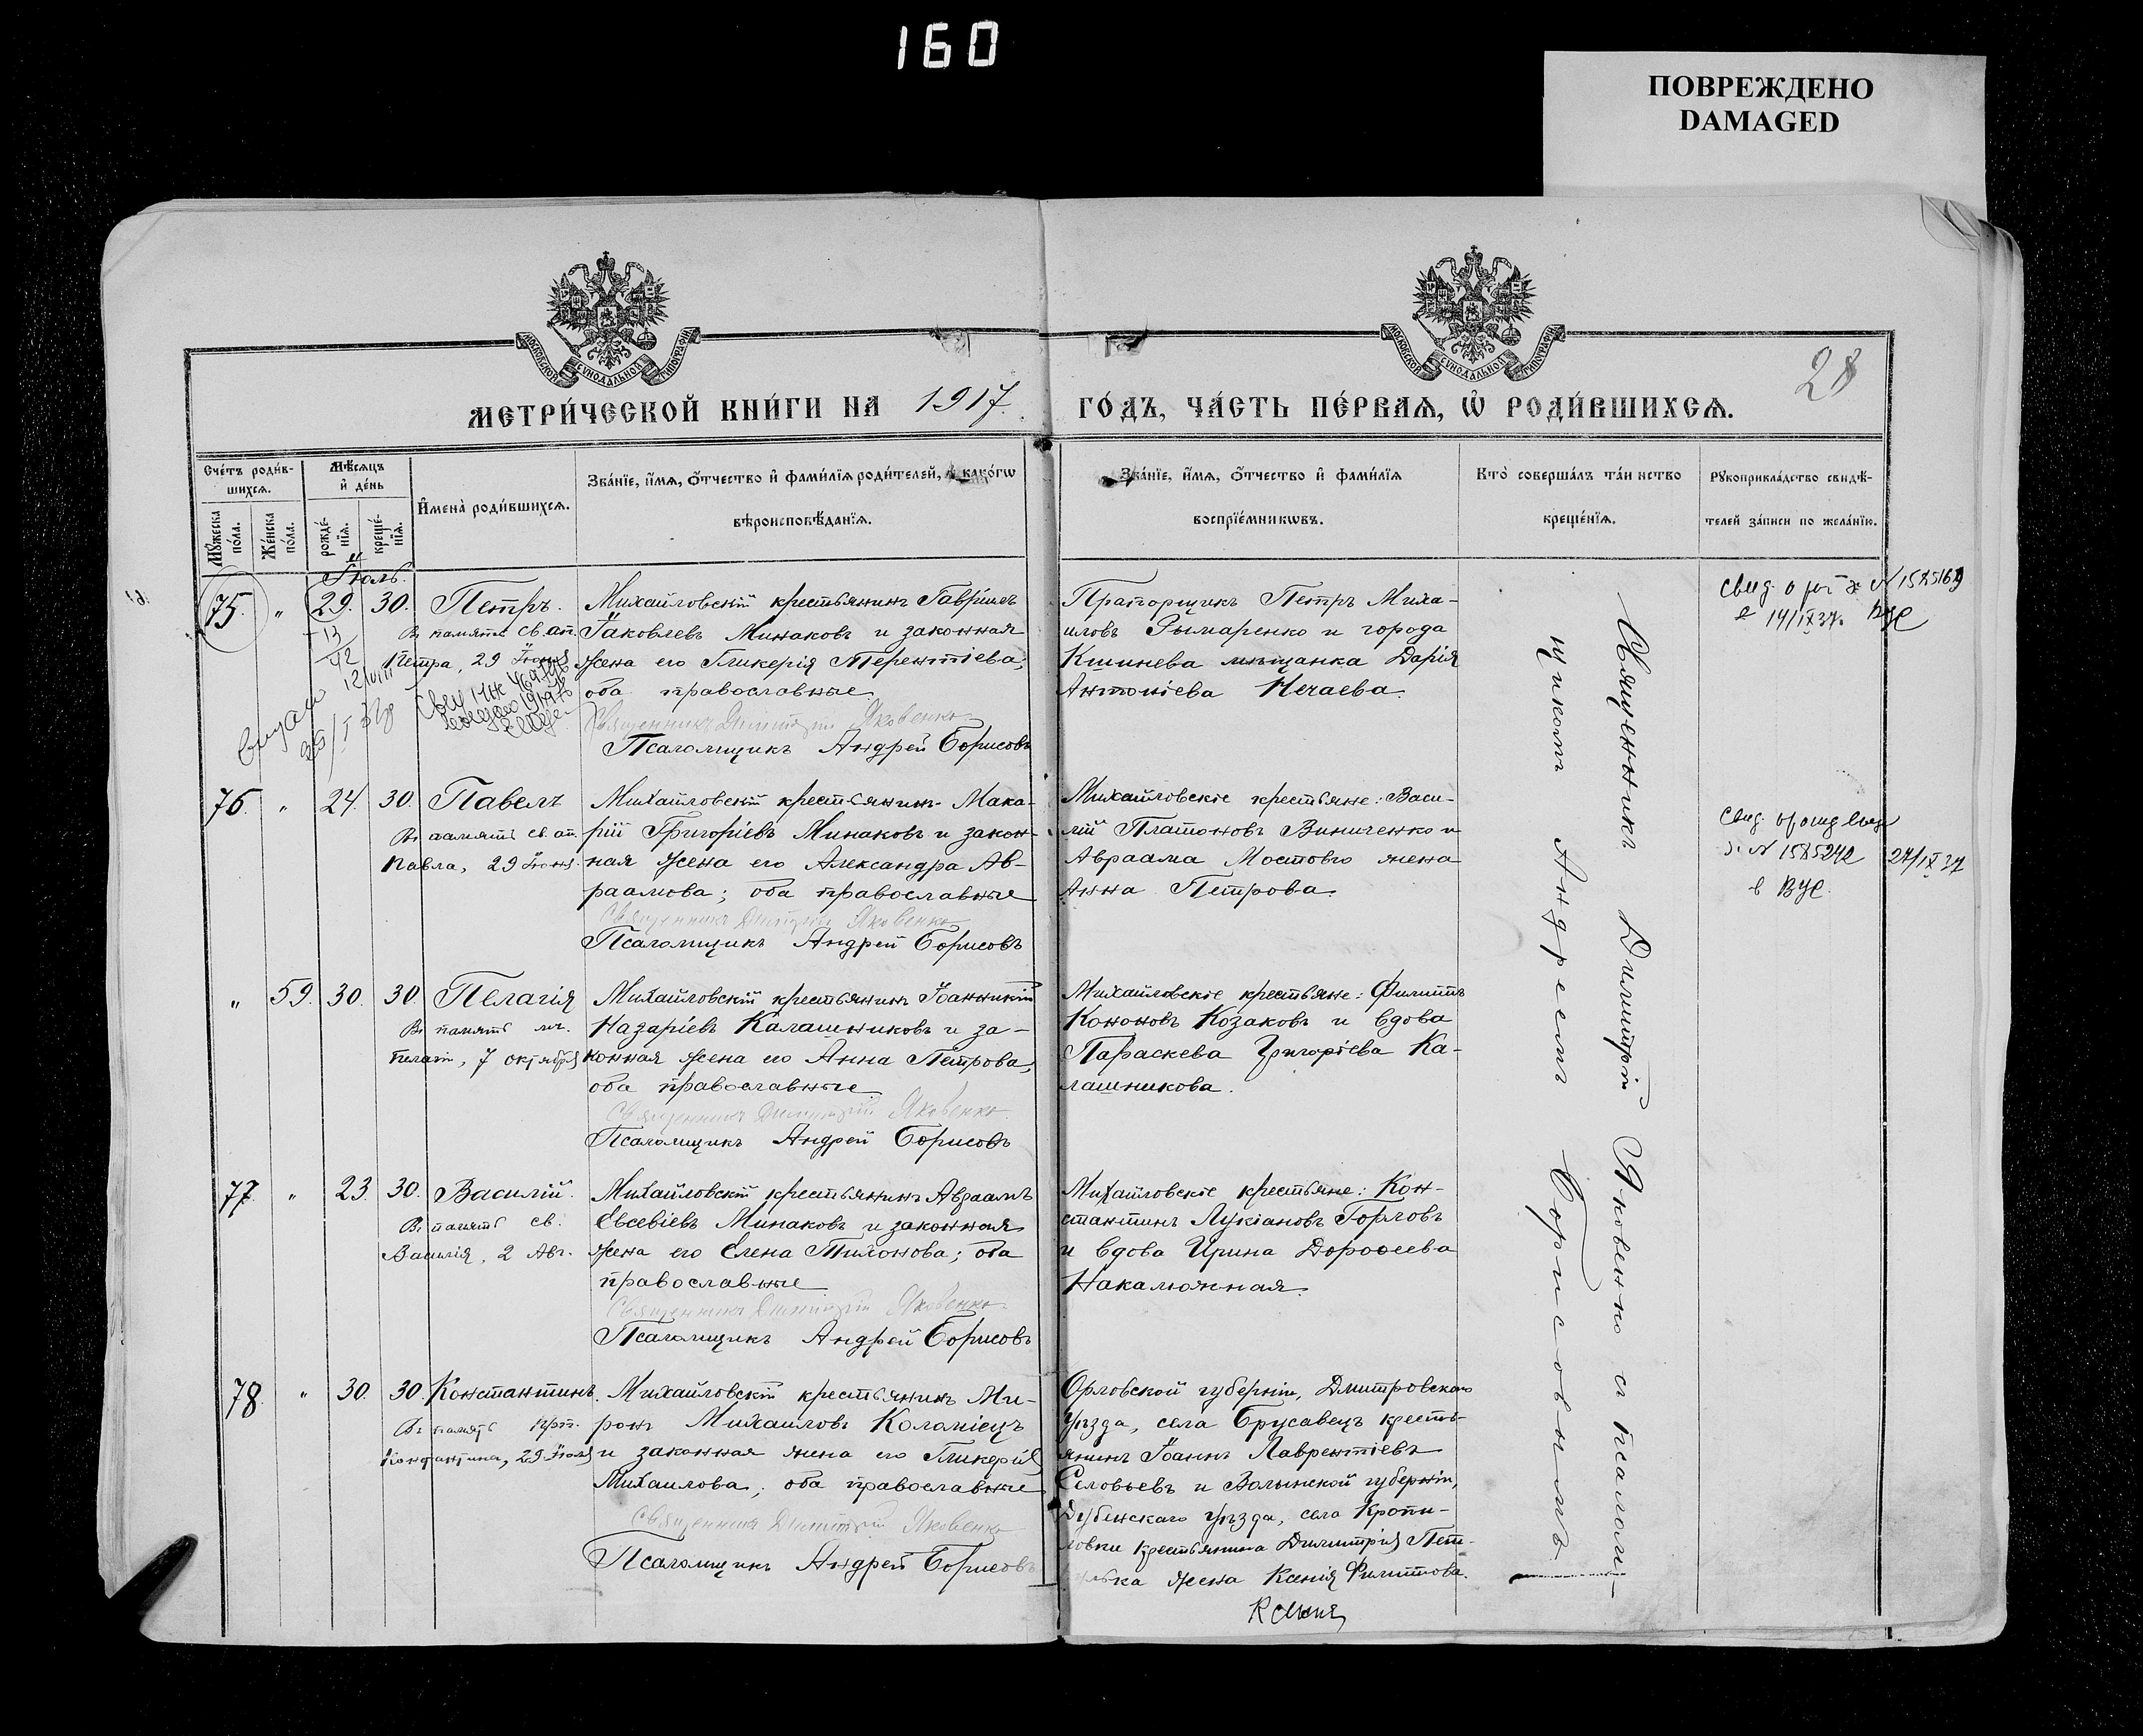 160
ПОВРЕЖДЕНО
DAMAGED
МОСКОВСКОЙ СѴНОДАЛЬНОЙ ТИПОГРАФІИ
МОСКОВСКОЙ СѴНОДАЛЬНОЙ ТИПОГРАФІИ
28
МЕТРИ́ЧЕСКОЙ КНИ́ГИ НА 1917. ГО́ДЪ, ЧА́СТЬ ПЕ́РВАЯ, Ѡ҆ РОДИ́ВШИХСЯ.
Сче́тъ роди́в-
шихся.
Мѣ́сяцъ
и҆ де́нь
Мꙋ́жеска
по́ла.
Же́нска
по́ла.
рожде́-
нїя.
креще́-
нїя.
И҆мена̀ роди́вшихся.
Зва́нїе, и҆́мя, ѻ҆́тчество и҆ фами́лїя роди́телей, и҆ како́гѡ
вѣроисповѣ́данїя.
Зва́нїе, и҆́мя, ѻ҆́тчество и҆ фами́лїя
воспрїе́мникѡвъ.
Кто̀ соверша́лъ та́инство
креще́нїя.
Рꙋкоприкла́дство свидѣ́-
телей за́писи по жела́нїю.
Іюль.
75. " 29. 30. Петръ.
Въ память св. ап.
Петра, 29 Іюня
Михайловскій крестьянинъ Гавріилъ
Іаковлевъ Минаковъ и законная
жена его Гликерія Терентіева;
оба православные
Священникъ Димитрій Яковенко
Псаломщикъ Андрей Борисовъ
Прапорщикъ Петръ Миха-
иловъ Рымаренко и города
Кишинева мѣщанка Дарія
Антоніева Нечаева.
N 1525169
14/IX 37.
76. " 24. 30. Павелъ
Въ память св. ап.
Павла, 29 Іюня.
Михайловскій крестьянинъ Мака-
рій Григоріевъ Минаковъ и закон-
ная жена его Александра Ав-
раамова; оба православные
Священникъ Димитрій Яковенко
Псаломщикъ Андрей Борисовъ
Михайловскіе крестьяне: Васи-
лій Платоновъ Виниченко и
Авраама Мостового жена
Анна Петрова.
N 1525242 27/IX 37
в ВУС.
" 59. 30. 30. Пелагія
Въ память мч.
Пелагіи, 7 октября
Михайловскій крестьянинъ Іоанникій
Назаріевъ Калашниковъ и за-
конная жена его Анна Петрова,
оба православные
Священникъ Димитрій Яковенко.
Псаломщикъ Андрей Борисовъ
Михайловскіе крестьяне: Филиппъ
Кононовъ Козаковъ и вдова
Параскева Григоріева Ка-
лашникова.
77. " 23. 30. Василій.
Въ память св.
Василія, 2 Авг.
Михайловскій крестьянинъ Авраамъ
Евсевіевъ Минаковъ и законная
жена его Елена Тихонова; оба
православные
Священникъ Димитрій Яковенко
Псаломщикъ Андрей Борисовъ
Михайловскіе крестьяне: Кон-
стантинъ Лукіановъ Горловъ
и вдова Ирина Дороѳеева
Накалюжная.
78. " 30. 30. Константинъ.
Въ память
Константина, 29 Іюля
Михайловскій крестьянинъ Ми-
ронъ Михаиловъ Коломіецъ
и законная жена его Гликерія
Михаилова, оба православные
Священникъ Димитрій Яковенко
Псаломщикъ Андрей Борисовъ
Орловской губерніи, Дмитровскаго
уѣзда, села Брусавецъ кресть-
янинъ Іоаннъ Лаврентіевъ
Соловьевъ и Волынской губерніи,
Дубенскаго уѣзда, села
крестьянина Димитрія
жена Ксенія Филиппова.
Священникъ Димитрій Яковенко съ псалом-
щикомъ Андреемъ Борисовымъ.